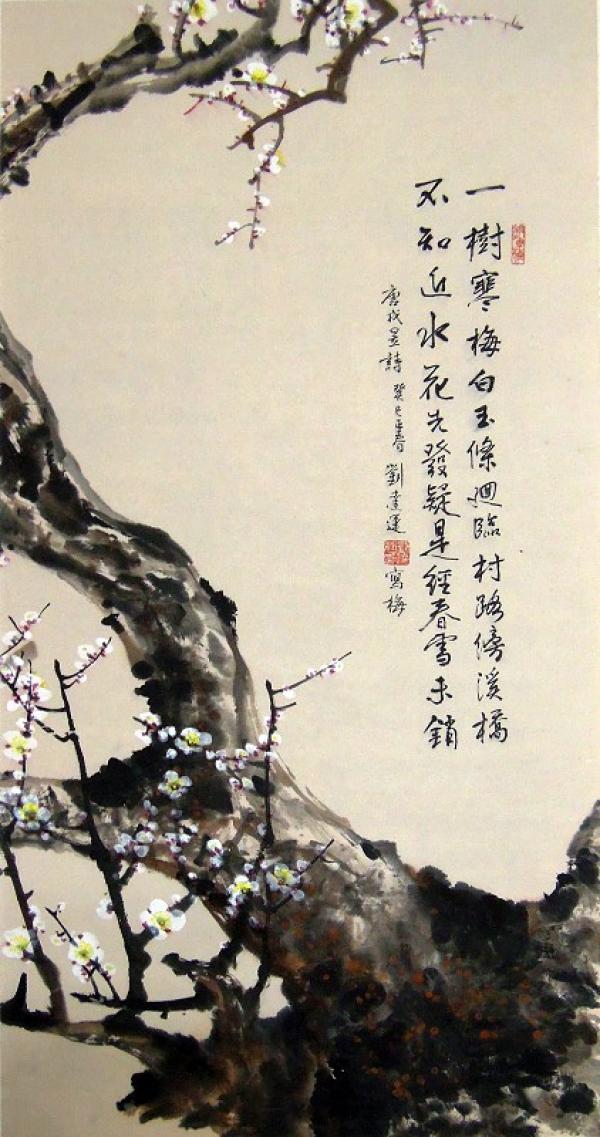 一樹寒梅白玉條迥臨村路傍溪橋
不知近水花先發疑是經春雪未銷
唐戎昱詩 癸巳春 劉達運 寫梅